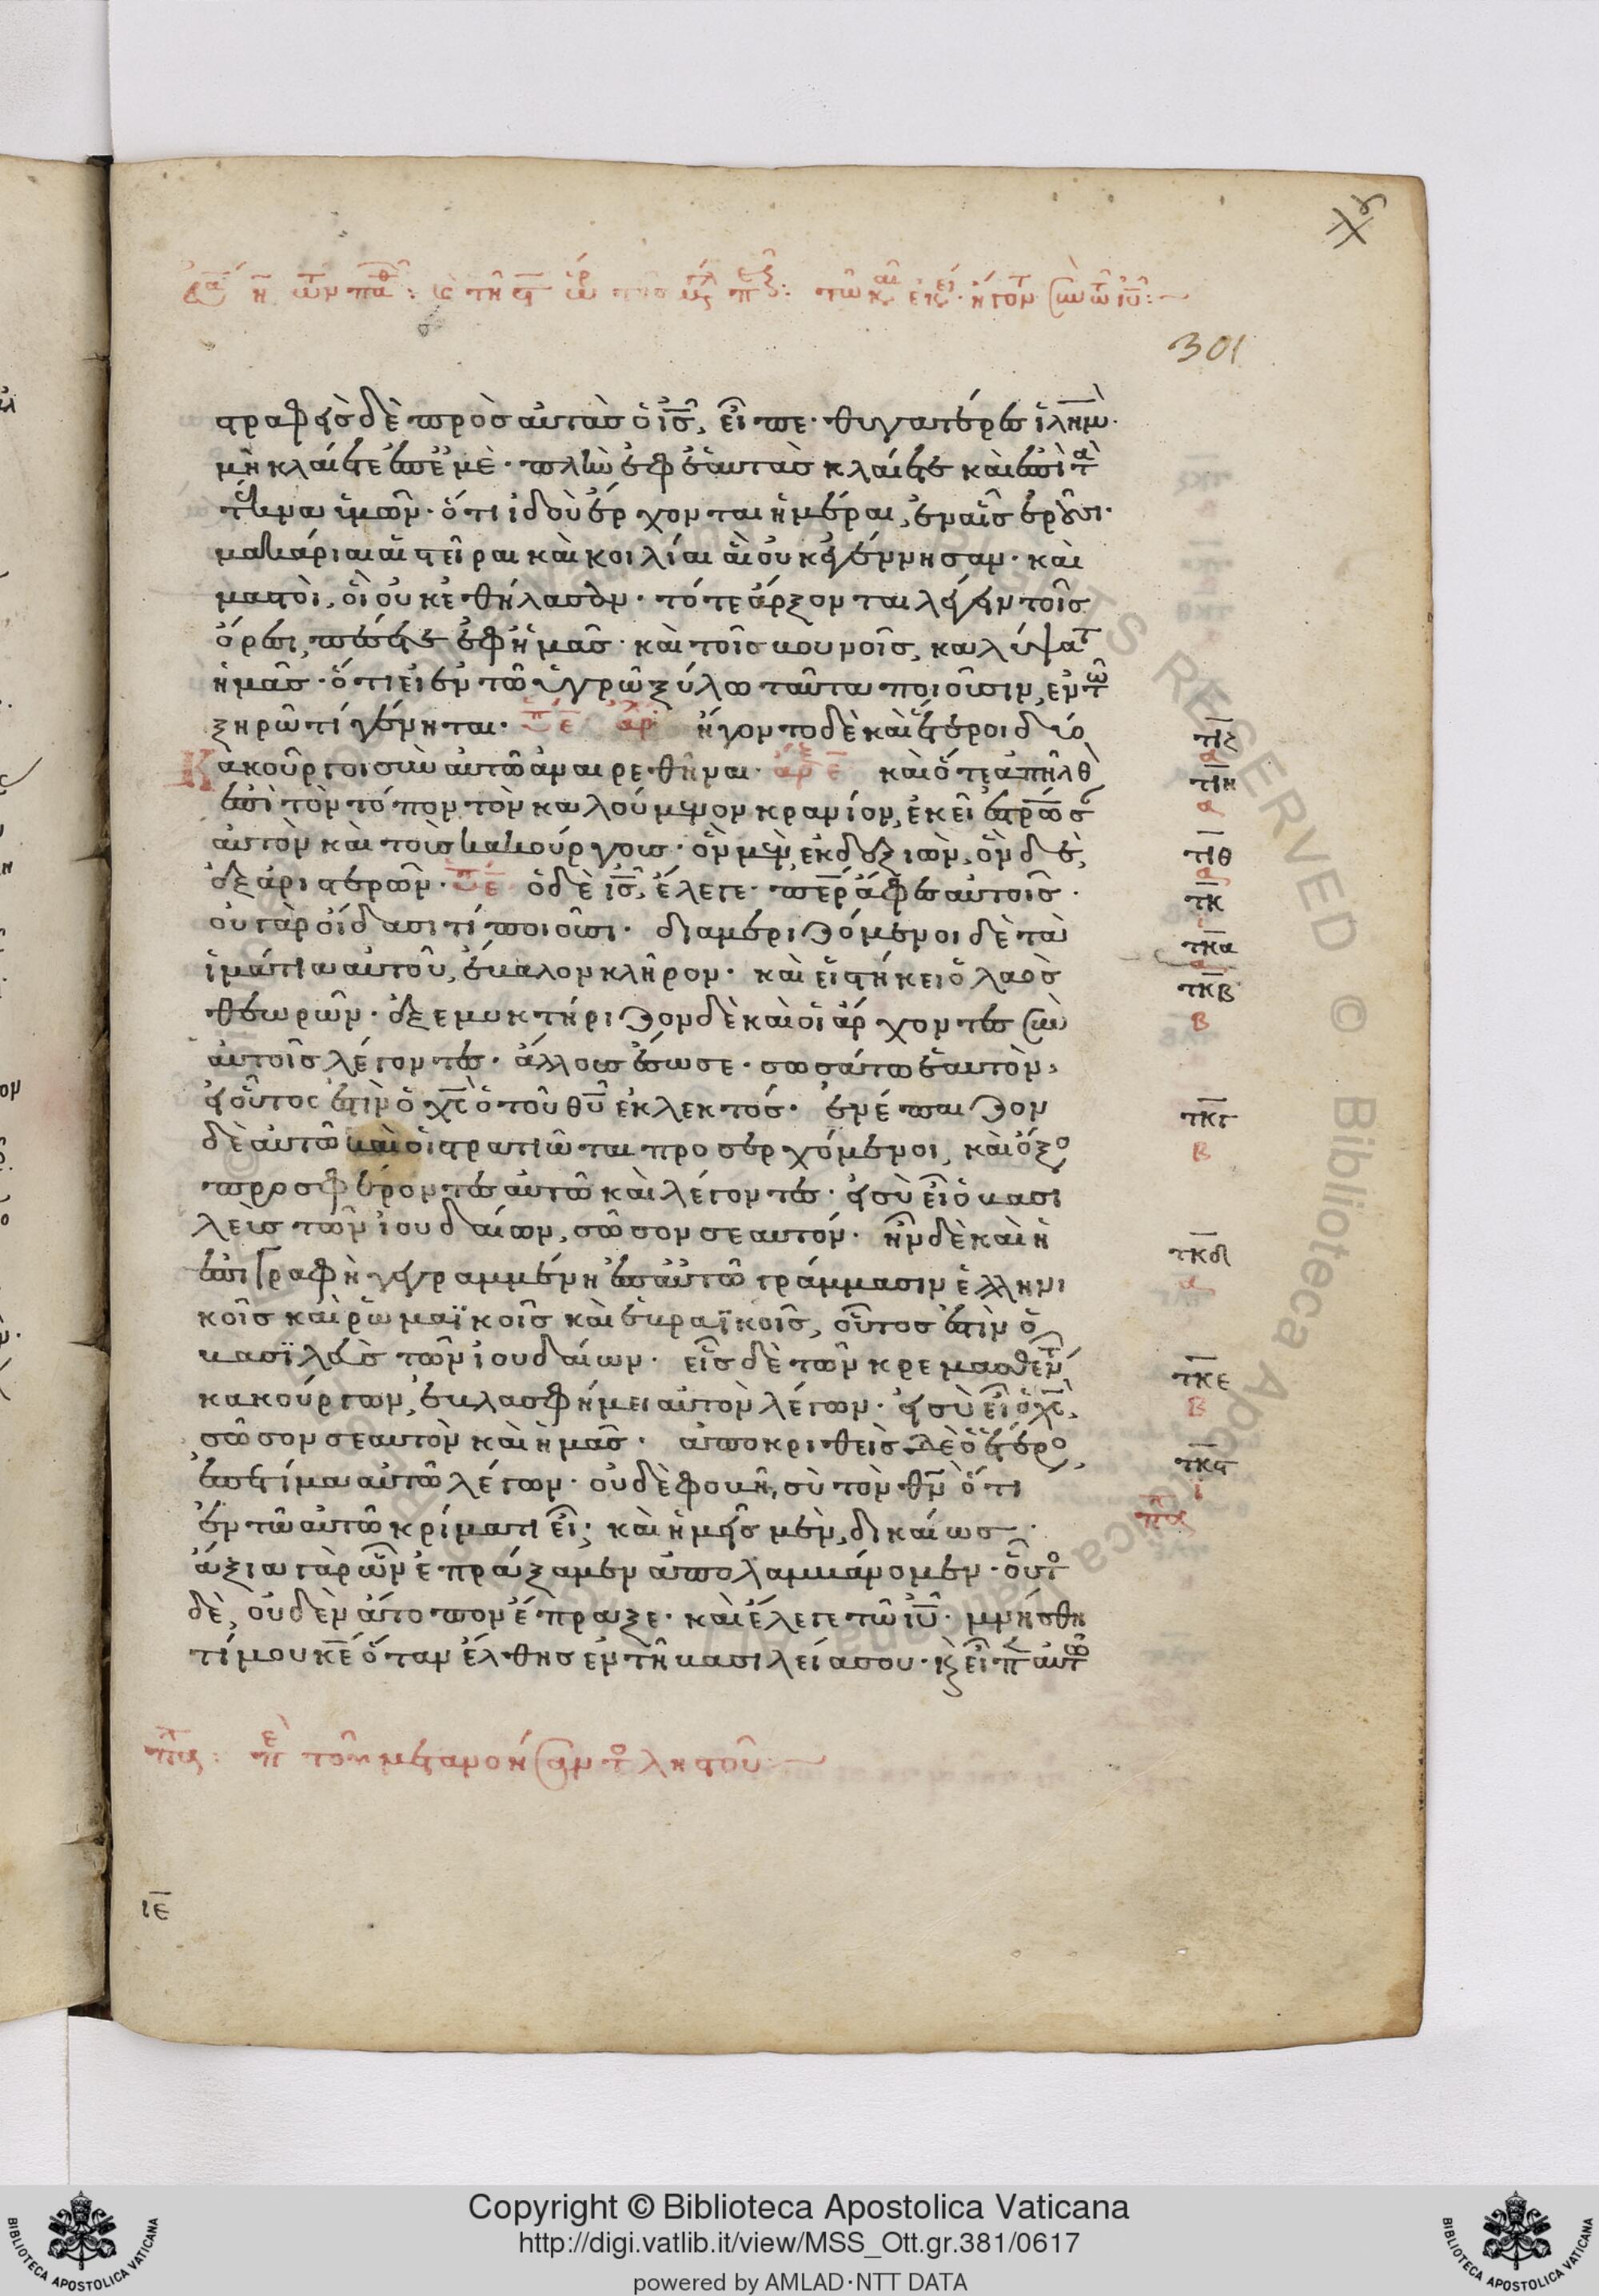 301
στραφεὶς δὲ πρὸς αὐτὰς ὁ ις, εἶπε· θυγατέρες ιλημ·
μὴ κλαίετε ἐπ' ἐμὲ· πλὴν ἐφ' ἑαυτὰς κλαίετε καὶ ἐπὶ τὰ
τέκνα ὑμῶν· ὅτι ἰδοὺ ἔρχονται ἡμέραι, ἐν αἷς ἐροῦσι·
μακάριαι αἱ στεῖραι καὶ κοιλίαι αἳ οὐκ ἐγέννησαν· καὶ
μαστοὶ, οἳ οὐκ ἐθήλασαν· τότε ἄρξονται λέγειν τοῖς
ὄρεσι, πέσετε ἐφ' ἡμᾶς· καὶ τοῖς βουνοῖς, καλύψατ
ἡμᾶς· ὅτι εἰ ἐν τῶ ὑγρῶ ξύλω ταῦτα ποιοῦσιν, ἐν τῶ
ξηρῶ τί γένηται· ἤγοντο δὲ καὶ ἕτεροι δύο
Κακοῦργοι σὺν αὐτῶ ἀναιρεθῆναι· καὶ ὅτε ἀπῆλθ
ἐπὶ τὸν τόπον τὸν καλούμενον κρανίον, ἐκεῖ ἐστρωσ
αὐτὸν καὶ τοὺς κακούργους· ὃν μὲν, ἐκ δεξιῶν, ὃν δὲ,
ἐξ ἀριστερῶν· ὁ δὲ ις, ἔλεγε· περ ἄφες αὐτοῖς·
οὐ γὰρ οἴδασι τί ποιοῦσι· διαμεριζόμενοι δὲ τὰ
ἱμάτια αὐτοῦ, ἔβαλον κλῆρον· καὶ εἱστήκει ὁ λαὸς
θεωρῶν· ἐξεμυκτήριζον δὲ καὶ οἱ ἄρχοντες σὺν
αὐτοῖς λέγοντες· ἄλλους ἔσωσε· σωσάτω ἑαυτὸν,
εἰ οὗτος ἐστὶν ὁ χς ὁ τοῦ θυ ἐκλεκτός· ἐνέπαιζον
δὲ αὐτῶ καὶ οἱ στρατιῶται προσερχόμενοι, καὶ ὄξο
προσφέροντες αὐτῶ καὶ λέγοντες· εἰ σὺ εἶ ὁ βασι
λεὺς τῶν ἰουδαίων, σῶσον σεαυτόν· ἦν δὲ καὶ ἡ
ἐπιγραφὴ γεγραμμένη ἐπ' αὐτῶ γράμμασιν ἑλληνι
κοῖς καὶ ῥωμαϊκοῖς καὶ ἑβραϊκοῖς, οὗτος ἐστὶν ὁ
βασϊλεὺς τῶν ἰουδαίων· εἷς δὲ τῶν κρεμασθέντ
κακούργων, ἐβλασφήμει αὐτὸν λέγων· εἰ σὺ εἶ ὁ χς,
σῶσον σεαυτὸν καὶ ἡμᾶς· ἀποκριθεὶς δὲ ὁ ἕτερο
ἐπετίμα αὐτῶ λέγων· οὐδὲ φοβῆ, σὺ τὸν θν ὅτι
ἐν τῶ αὐτῶ κρίματι εἶ; καὶ ἡμεῖς μὲν, δικαίως·
ἄξια γὰρ ὧν ἐπράξαμεν ἀπολαμβάνομεν· οὗτο
δὲ, οὐδὲν ἄτοπον ἔπραξε· καὶ ἔλεγε τῶ ιυ· μνήσθη
τί μου κε ὅταν ἔλθης ἐν τῆ βασιλεία σου· κ εἶπ αὐτῶ
τιζ
α
τιη
α
τιθ
τκ
τκα
τκβ
β
τκγ
β
τκδ
α
τκε
β
τκϛ
ι
πϛ
πϛ: πε τοῦ μετανοήσαντο ληστοῦ
ιε
Copyright © Biblioteca Apostolica Vaticana
http://digi.vatlib.it/view/MSS_Ott.gr.381/0617
powered by AMLAD·NTT DATA